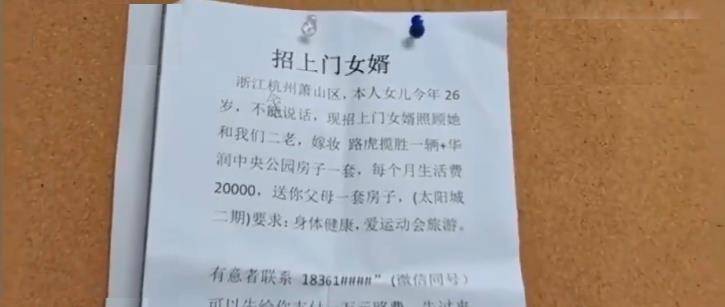 招上门女婿
浙江杭州萧山区，本人女儿今年 26
岁，不能说话，现招上门女婿照顾她
和我们二老，嫁妆 路虎揽胜一辆+华
润中央公园房子一套，每个月生活费
20000，送你父母一套房子，(太阳城
二期)要求：身体健康，爱运动会旅游。
有意者联系 18361####”(微信同号)
可以先给你支付一万元路费，先过来